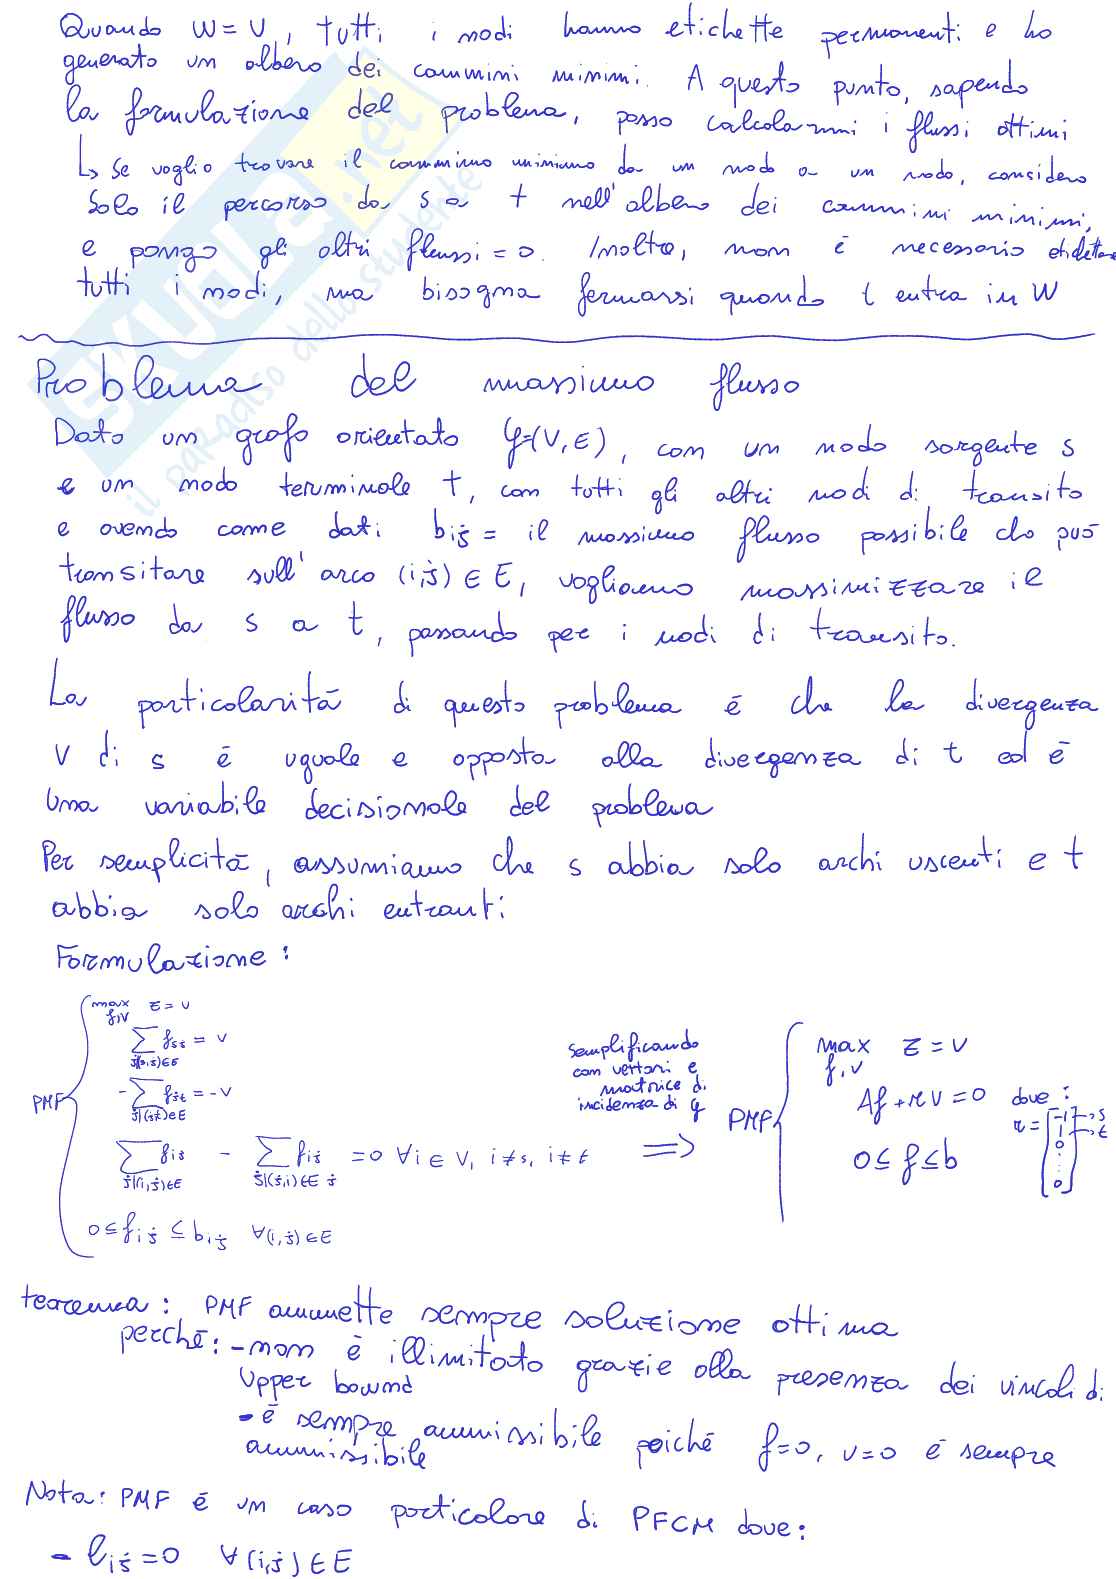 Quando W = V, tutti i nodi hanno etichette permanenti e ho
generato un albero dei cammini minimi. A questo punto, sapendo
la formulazione del problema, posso calcolarmi i flussi ottimi
↳ Se voglio trovare il cammino minimo da un nodo a un nodo, considero
solo il percorso da s a t nell'albero dei cammini minimi,
e pongo gli altri flussi = 0. Inoltre, non è necessario etichettare
tutti i nodi, ma bisogna fermarsi quando t entra in W
Problema del massimo flusso
Dato un grafo orientato G=(V,E), con un nodo sorgente s
e un nodo terminale t, con tutti gli altri nodi di transito
e avendo come dati bij = il massimo flusso possibile che può
transitare sull'arco (i,j) ∈ E, vogliamo massimizzare il
flusso da s a t, passando per i nodi di transito.
La particolarità di questo problema è che la divergenza
v di s è uguale e opposta alla divergenza di t ed è
una variabile decisionale del problema
Per semplicità, assumiamo che s abbia solo archi uscenti e t
abbia solo archi entranti:
Formulazione:
PMF
max z = v
f,v
∑ fsj = v
j|(s,j)∈E
-∑ fjt = -v
j|(j,t)∈E
∑ fij - ∑ fij = 0 ∀i ∈ V, i≠s, i≠t
j|(i,j)∈E j|(j,i)∈E j
0 ≤ fij ≤ bij ∀(i,j) ∈ E
semplificando
con vettori e
matrice di
incidenza di G
⇒
PMF
max z = v
f,v
Af + rv = 0
0 ≤ f ≤ b
dove:
r = [-1 → s
1 → t
0
⋮
0]
teorema: PMF ammette sempre soluzione ottima
perché: - non è illimitato grazie alla presenza dei vincoli di
Upper bound
- è sempre ammissibile poiché f=0, v=0 è sempre
ammissibile
Nota: PMF è un caso particolare di PFCM dove:
- lij = 0 ∀(i,j) ∈ E
SKUOLA.net
il paradiso dello studente